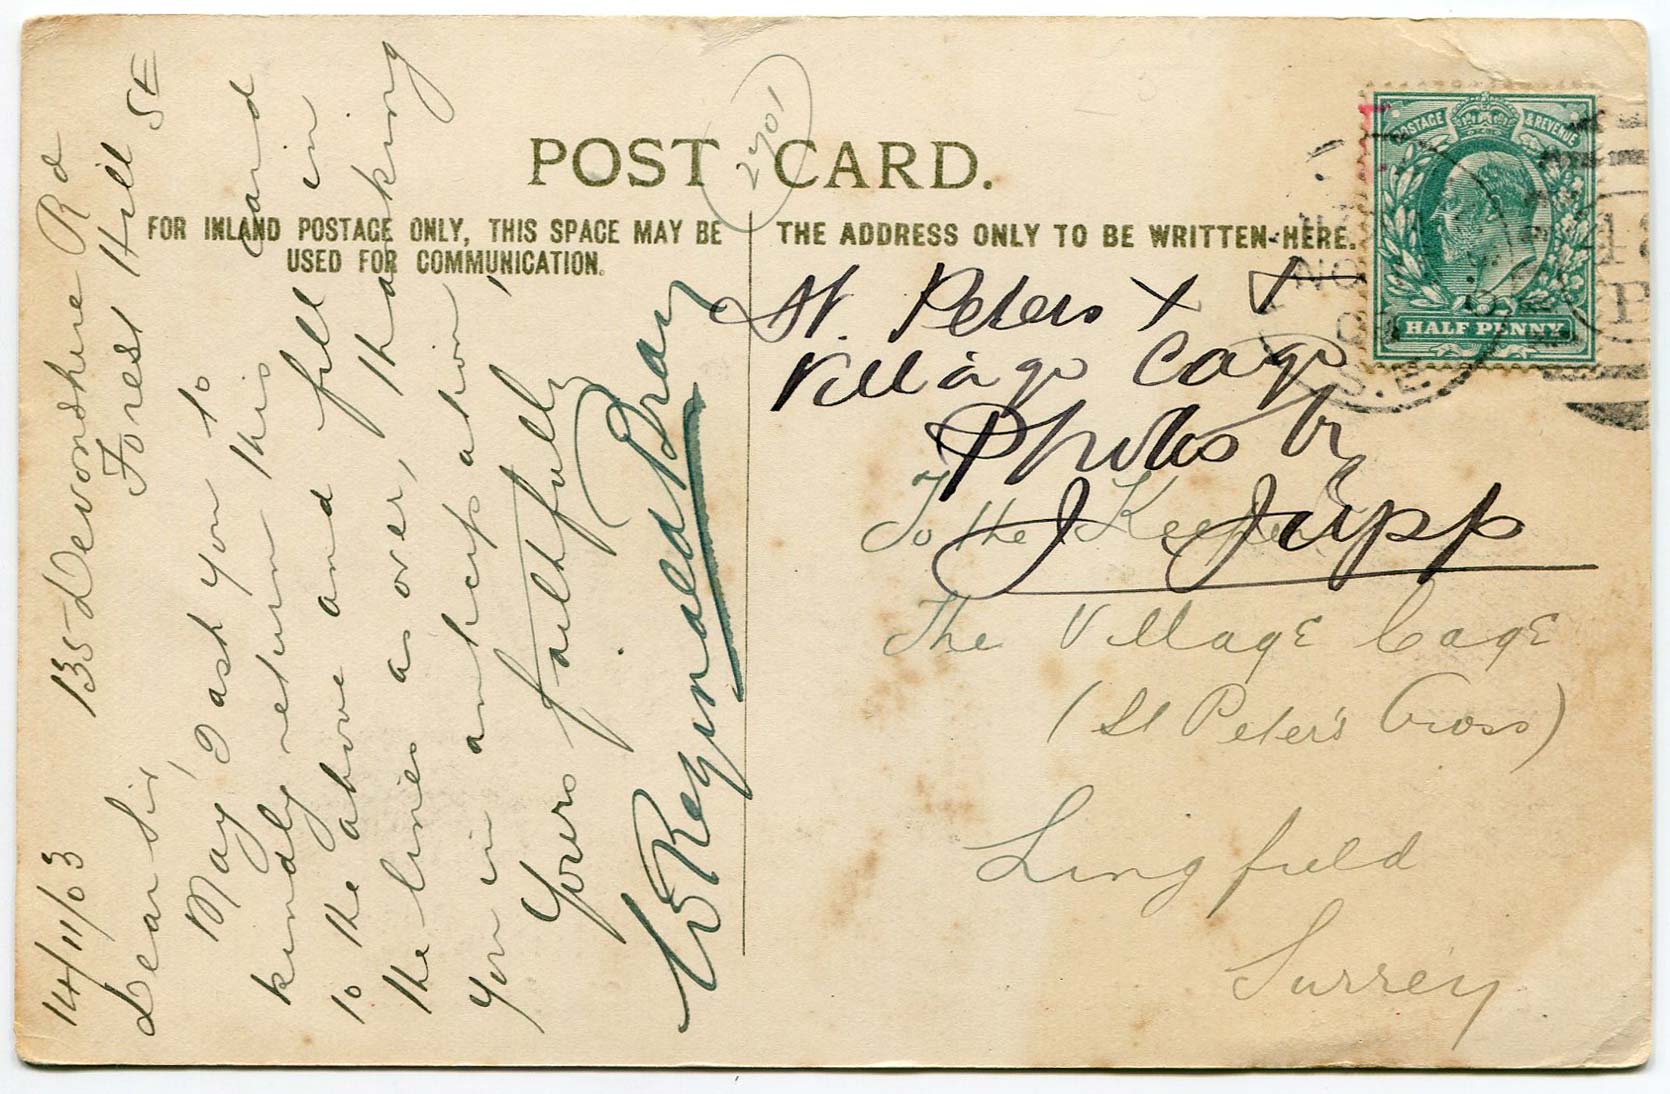 POST CARD.
2701
FOR INLAND POSTAGE ONLY, THIS SPACE MAY BE
USED FOR COMMUNICATION.
THE ADDRESS ONLY TO BE WRITTEN HERE.
POSTAGE & REVENUE
HALF PENNY
S.E.
135 Devonshire Rd
Forest Hill SE
14/11/03
Dear Sir,
May I ask you to
kindly return this card
to the above and fill in
the lines as over, thanking
you in anticipation,
Yours faithfully
Reginald Bray
St. Peters X
Village Cage
Photos by
J Jupp
To the Keeper
The Village Cage
(St Peter's Cross)
Lingfield
Surrey